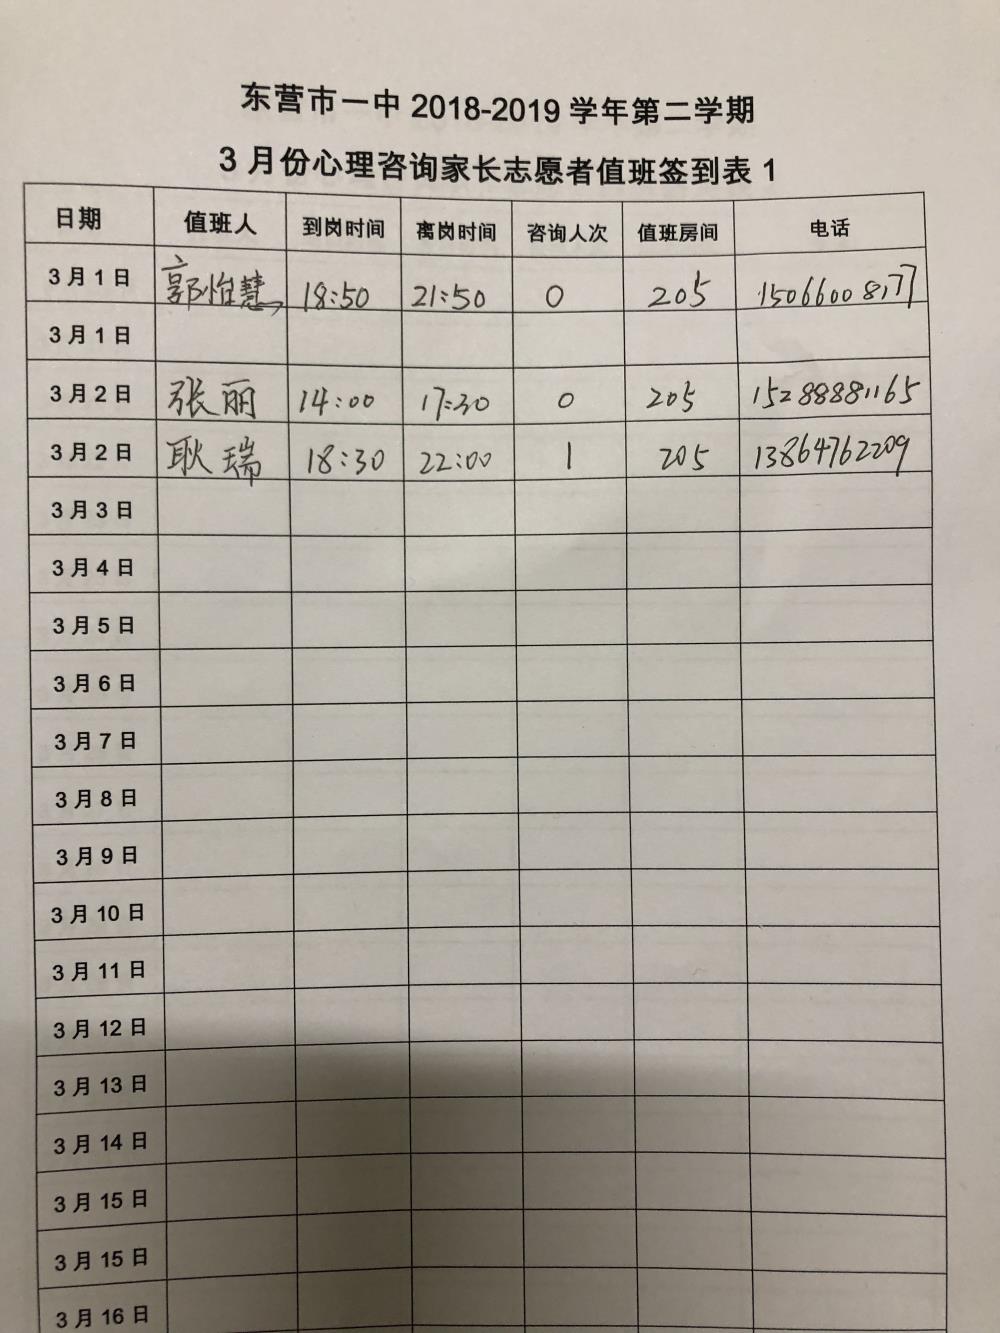 东营市一中 2018-2019 学年第二学期
3 月份心理咨询家长志愿者值班签到表 1
日期 值班人 到岗时间 离岗时间 咨询人次 值班房间 电话
3 月 1 日 郭怡慧 18:50 21:50 0 205 15066008177
3 月 1 日
3 月 2 日 张丽 14:00 17:30 0 205 15288881165
3 月 2 日 耿瑞 18:30 22:00 1 205 13864762209
3 月 3 日
3 月 4 日
3 月 5 日
3 月 6 日
3 月 7 日
3 月 8 日
3 月 9 日
3 月 10 日
3 月 11 日
3 月 12 日
3 月 13 日
3 月 14 日
3 月 15 日
3 月 15 日
3 月 16 日